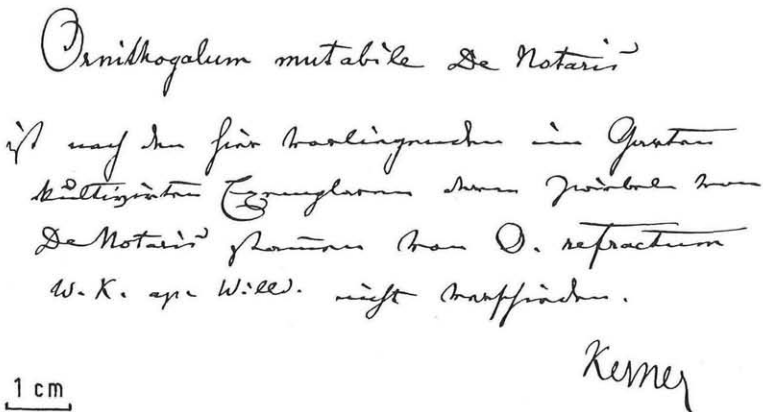 Ornithogalum mutabile De Notaris
ist nach den hier vorliegenden im Garten
kultivirten Exemplaren deren Zwiebel von
De Notaris stam̄en von O. refractum
W. K. ap. Willd. nicht verschieden.
Kerner
1 cm